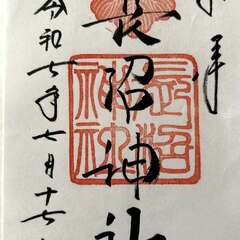 奉拝
長沼神社
長沼神社
令和七年七月十七日